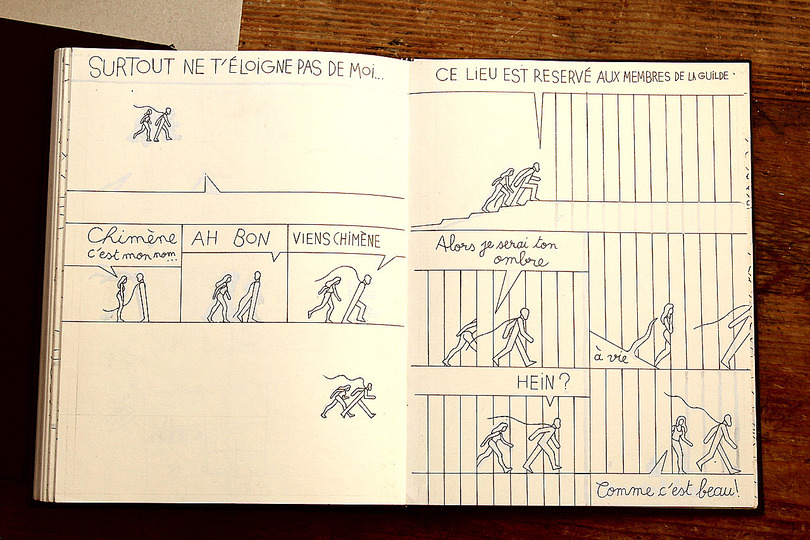 SURTOUT NE T'ÉLOIGNE PAS DE MOI...
Chimène
c'est mon nom...
AH BON
VIENS CHIMÈNE
CE LIEU EST RESERVÉ AUX MEMBRES DE LA GUILDE.
Alors je serai ton
ombre
à vie
HEIN ?
Comme c'est beau!